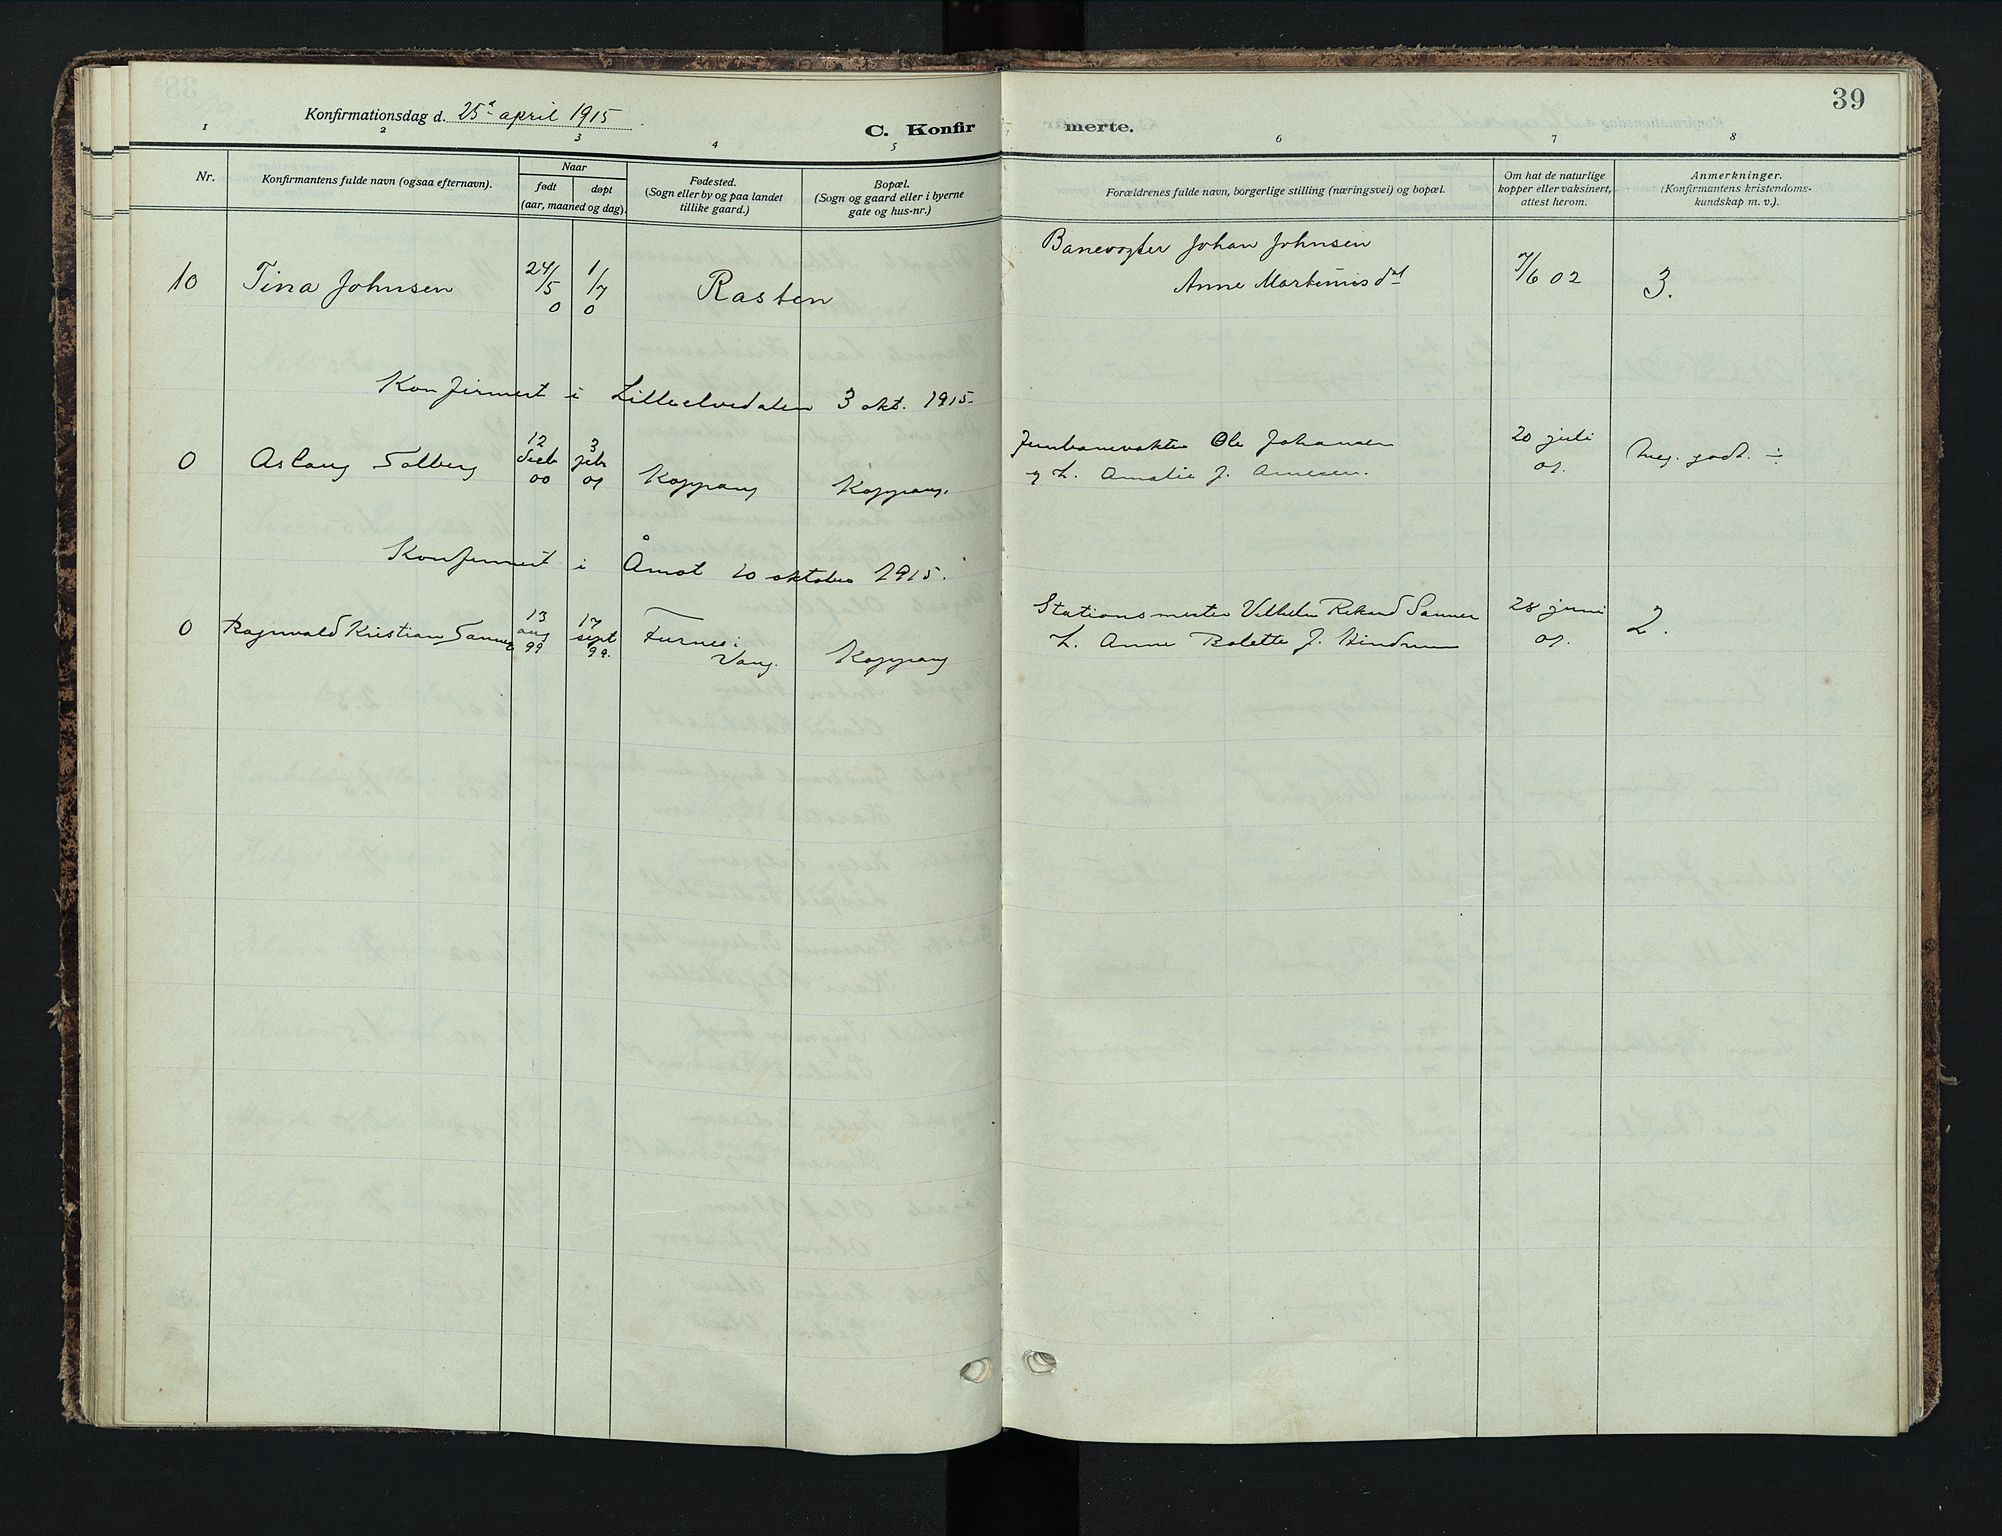 39
Konfirmationsdag d. 25de april 1915
C. Konfirmerte.
1 2 3 4 5 6 7 8
Nr.
Konfirmantens fulde navn (ogsaa efternavn).
Naar
født døpt
(aar, maaned og dag).
Fødested.
(Sogn eller by og paa landet
tillike gaard.)
Bopæl.
(Sogn og gaard eller i byerne
gate og hus-nr.)
Forældrenes fulde navn, borgerlige stilling (næringsvei) og bopæl.
Om hat de naturlige
kopper eller vaksinert,
attest herom.
Anmerkninger.
(Konfirmantens kristendoms-
kundskap m. v.).
10 Tina Johnsen 24/5 0 1/7 0 Rasten
Banevogter Johan Johnsen
Anne Martinusdt
7/6 02 3.
Konfirmert i Lilleelvedalen 3 okt. 1915
0 Aslaug Solberg 12 decb 00 3 feb 01 Koppang Koppang.
Jernbanevakter Ole Johansen
og h. Amalie f. Arnesen.
20 juli 01. Meg. godt. ÷
Konfirmert i Åmot 10 oktober 1915.
0 Ragnvald Kristian Sanner 13 aug 99 17 sept 99. Furnes i Vang. Koppang
Stationsmester Vilhelm Rikard Sanner
h. Anne Bolette f.
28 juni 01. 2.